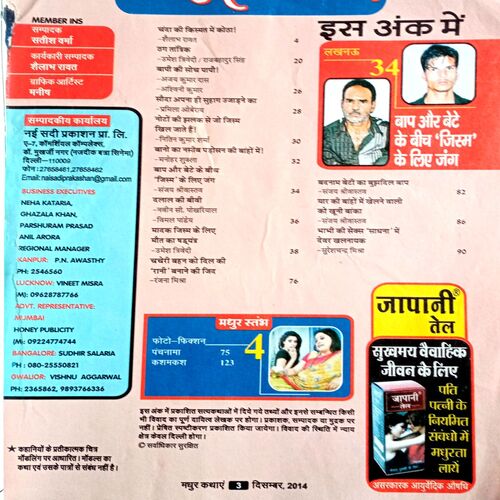 MEMBER INS
सम्पादक
सतीश वर्मा
कार्यकारी सम्पादक
शैलाभ रावत
ग्राफिक आर्टिस्ट
मनीष
सम्पादकीय कार्यालय
नई सदी प्रकाशन प्रा. लि.
ए-7, कॉमर्शियल कॉम्पलेक्स,
डॉ. मुखर्जी नगर (नजदीक बत्रा सिनेमा)
दिल्ली-110009
फोन :27658461, 27658462
Email:naisadiprakashan@gmail.com
BUSINESS EXECUTIVES
NEHA KATARIA,
GHAZALA KHAN,
PARSHURAM PRASAD
ANIL ARORA
REGIONAL MANAGER
KANPUR: P.N. AWASTHY
PH: 2546560
LUCKNOW: VINEET MISRA
M) 09628787766
ADVT. REPRESENTATIVE:
MUMBAI
HONEY PUBLICITY
(M): 09224774744
BANGALORE: SUDHIR SALARIA
PH : 080-25550821
GWALIOR: VISHNU AGGARWAL
PH: 2365862, 9893766336
★ कहानियों के प्रतीकात्मक चित्र
मॉडलिंग पर आधारित। मॉडल्स का
कथा एवं उसके पात्रों से संबंध नहीं है।
चंदा की किस्मत में कोठा!
-शैलाभ रावत 4
ठग तांत्रिक
-उमेश त्रिवेदी / राजबहादुर सिंह 20
बापी की सोच पापी!
-अजय कुमार दास
-अश्विनी कुमार 26
सौदा अपना ही सुहाग उजाड़ने का
-प्रमिला ओबेराय 28
नोटों की झलक से जो जिस्म
खिल जाते हैं!
-नितिन कुमार शर्मा 30
बानो का नसीब पड़ोसन की बांहों में!
-मनोहर शुक्ला 32
बाप और बेटे के बीच
'जिस्म' के लिए जंग
-संजय श्रीवास्तव 34
दलाल की बीवी
-नवीन सी. पोखरियाल
-विमल पांडेय 36
मादक जिस्म के लिए
मौत का षड्यंत्र
-उमेश त्रिवेदी 38
चचेरी बहन को दिल की
'रानी' बनाने की जिद
-रंजना मिश्रा 76
मधुर स्तंभ
फोटो-फिक्शन 4
पंचनामा 75
कशमकश 123
इस अंक में
लखनऊ
34
बाप और बेटे
के बीच 'जिस्म'
के लिए जंग
बदनाम बेटी का बुझदिल बाप
-संजय श्रीवास्तव 82
यार की बांहों में खेलने वाली
को खूनी बांका
-संजय श्रीवास्तव 86
भाभी की सेक्स 'साधना' में
देवर खलनायक
-सुरेशचन्द्र मिश्रा 90
जापानी®
तेल
सुखमय वैवाहिक
जीवन के लिए
जापानी
तेल
पति
पत्नी के
नियमित
संबंधो में
मधुरता
लाये
असरकारक आयुर्वेदिक औषधि
इस अंक में प्रकाशित सत्यकथाओं में दिये गये तथ्यों और इनसे सम्बन्धित किसी
भी विवाद का पूर्ण दायित्व लेखक पर होगा। प्रकाशक, सम्पादक या मुद्रक पर
नहीं। प्रेषित स्पष्टीकरण प्रकाशित किया जायेगा। विवाद की स्थिति में न्याय
क्षेत्र केवल दिल्ली होगा।
© सर्वाधिकार सुरक्षित
मधुर कथाएं 3 दिसम्बर, 2014